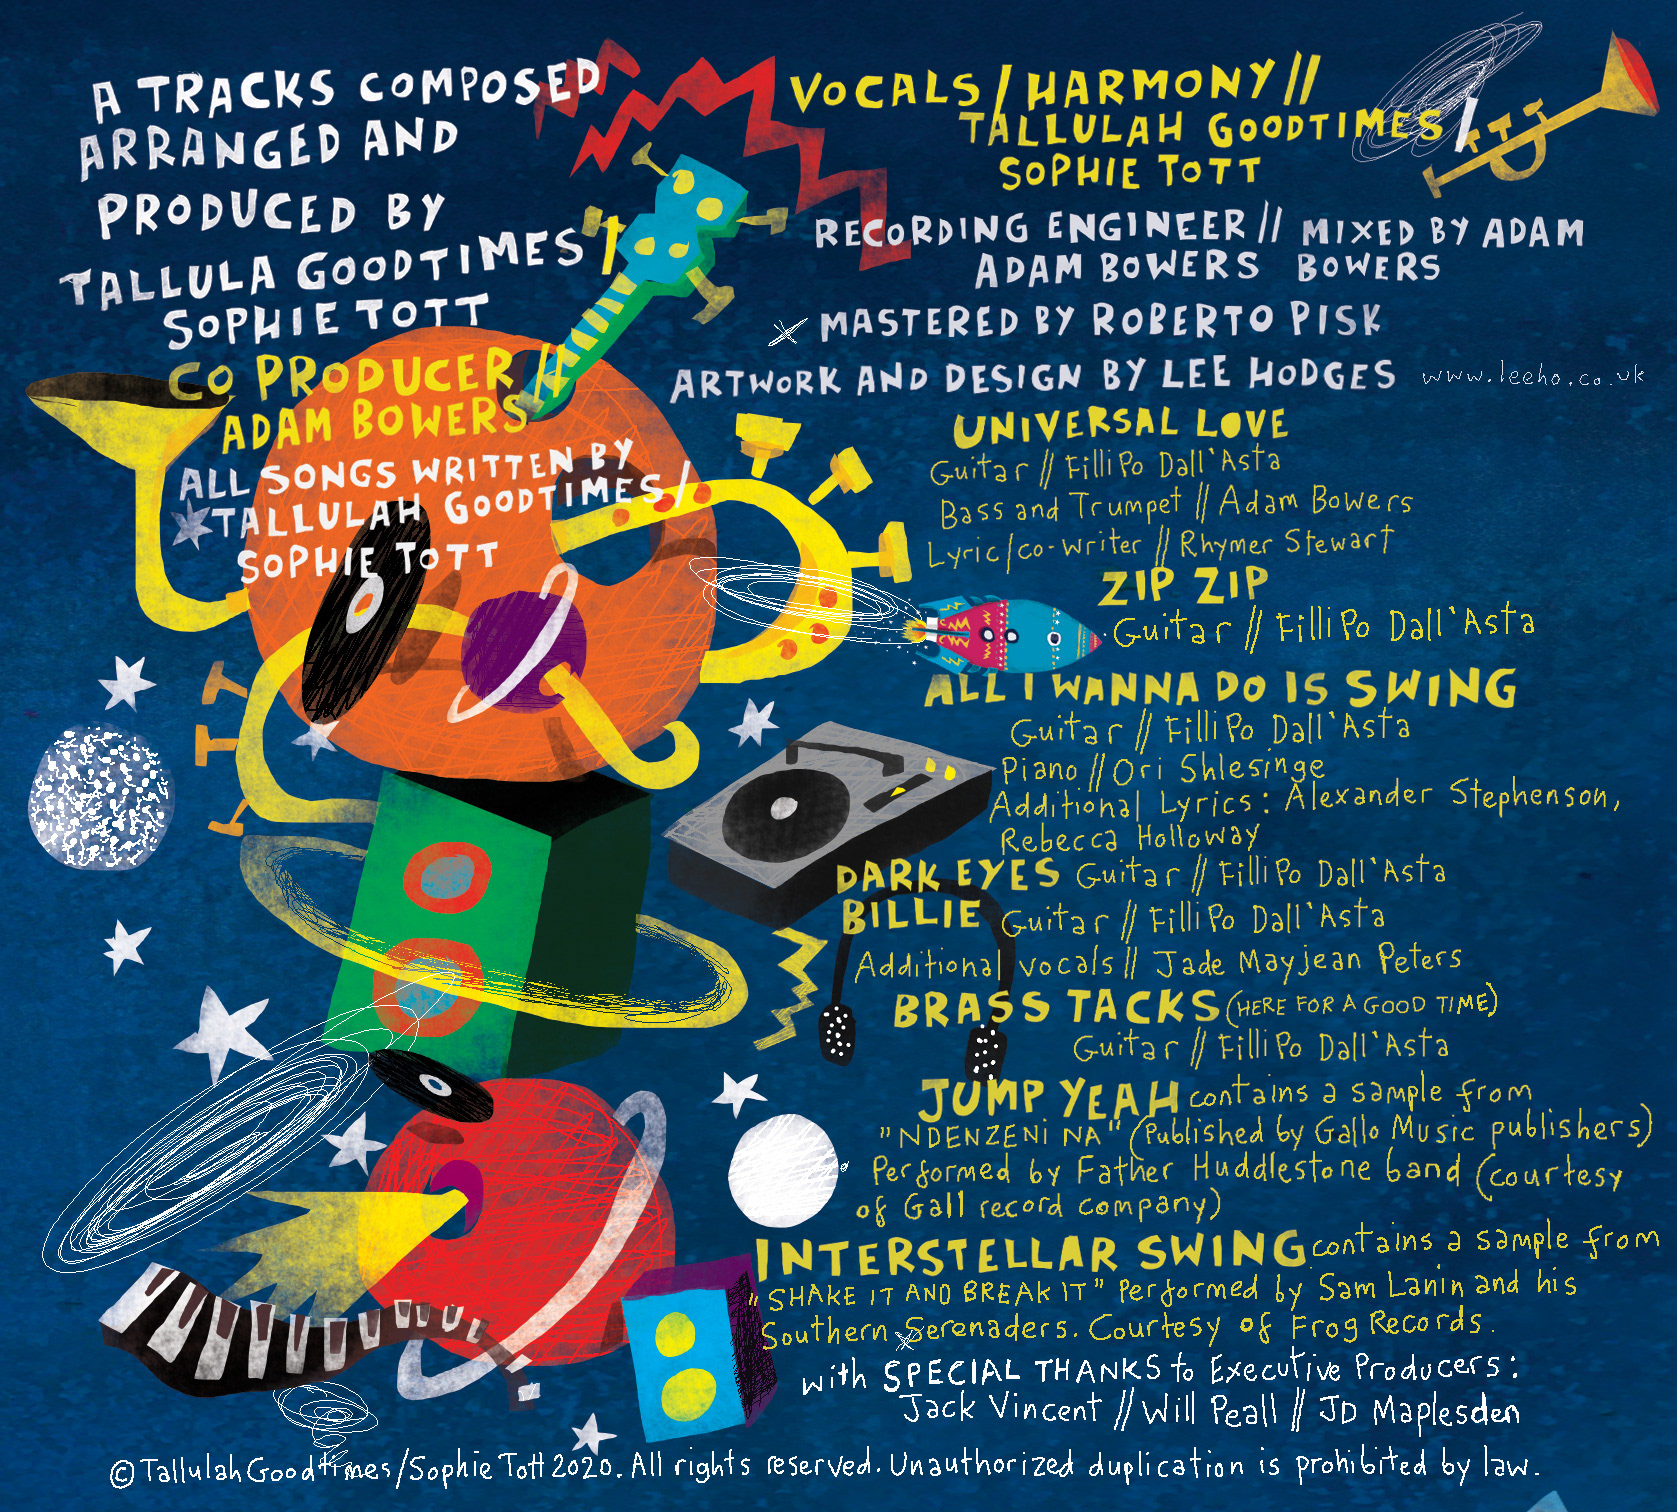 A TRACKS COMPOSED
ARRANGED AND
PRODUCED BY
TALLULA GOODTIMES /
SOPHIE TOTT
CO PRODUCER //
ADAM BOWERS
ALL SONGS WRITTEN BY
TALLULAH GOODTIMES /
SOPHIE TOTT
VOCALS / HARMONY //
TALLULAH GOODTIMES /
SOPHIE TOTT
RECORDING ENGINEER //
ADAM BOWERS
MIXED BY ADAM
BOWERS
MASTERED BY ROBERTO PISK
ARTWORK AND DESIGN BY LEE HODGES www.leeho.co.uk
UNIVERSAL LOVE
Guitar // Filli Po Dall'Asta
Bass and Trumpet // Adam Bowers
Lyric/co-writer // Rhymer Stewart
ZIP ZIP
Guitar // Filli Po Dall'Asta
ALL I WANNA DO IS SWING
Guitar // Filli Po Dall'Asta
Piano // Ori Shlesinge
Additional Lyrics: Alexander Stephenson,
Rebecca Holloway
DARK EYES Guitar // Filli Po Dall'Asta
BILLIE Guitar // Filli Po Dall'Asta
Additional vocals // Jade Mayjean Peters
BRASS TACKS (HERE FOR A GOOD TIME)
Guitar // Filli Po Dall'Asta
JUMP YEAH contains a sample from
"NDENZENI NA" (Published by Gallo Music publishers)
Performed by Father Huddlestone band (courtesy
of Gall record company)
INTERSTELLAR SWING contains a sample from
"SHAKE IT AND BREAK IT" Performed by Sam Lanin and his
Southern Serenaders. Courtesy of Frog Records.
with SPECIAL THANKS to Executive Producers:
Jack Vincent // Will Peall // JD Maplesden
©Tallulah Goodtimes/Sophie Tott 2020. All rights reserved. Unauthorized duplication is prohibited by law.